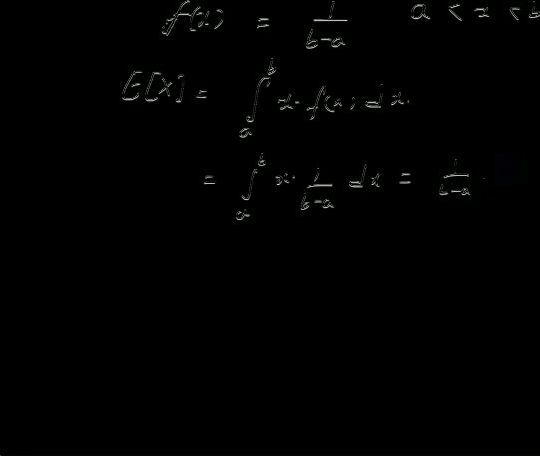 f(x) = 1/(b-a) a < x < b
E[X] = ∫_a^b x · f(x) dx.
= ∫_a^b x · 1/(b-a) dx = 1/(b-a) ·